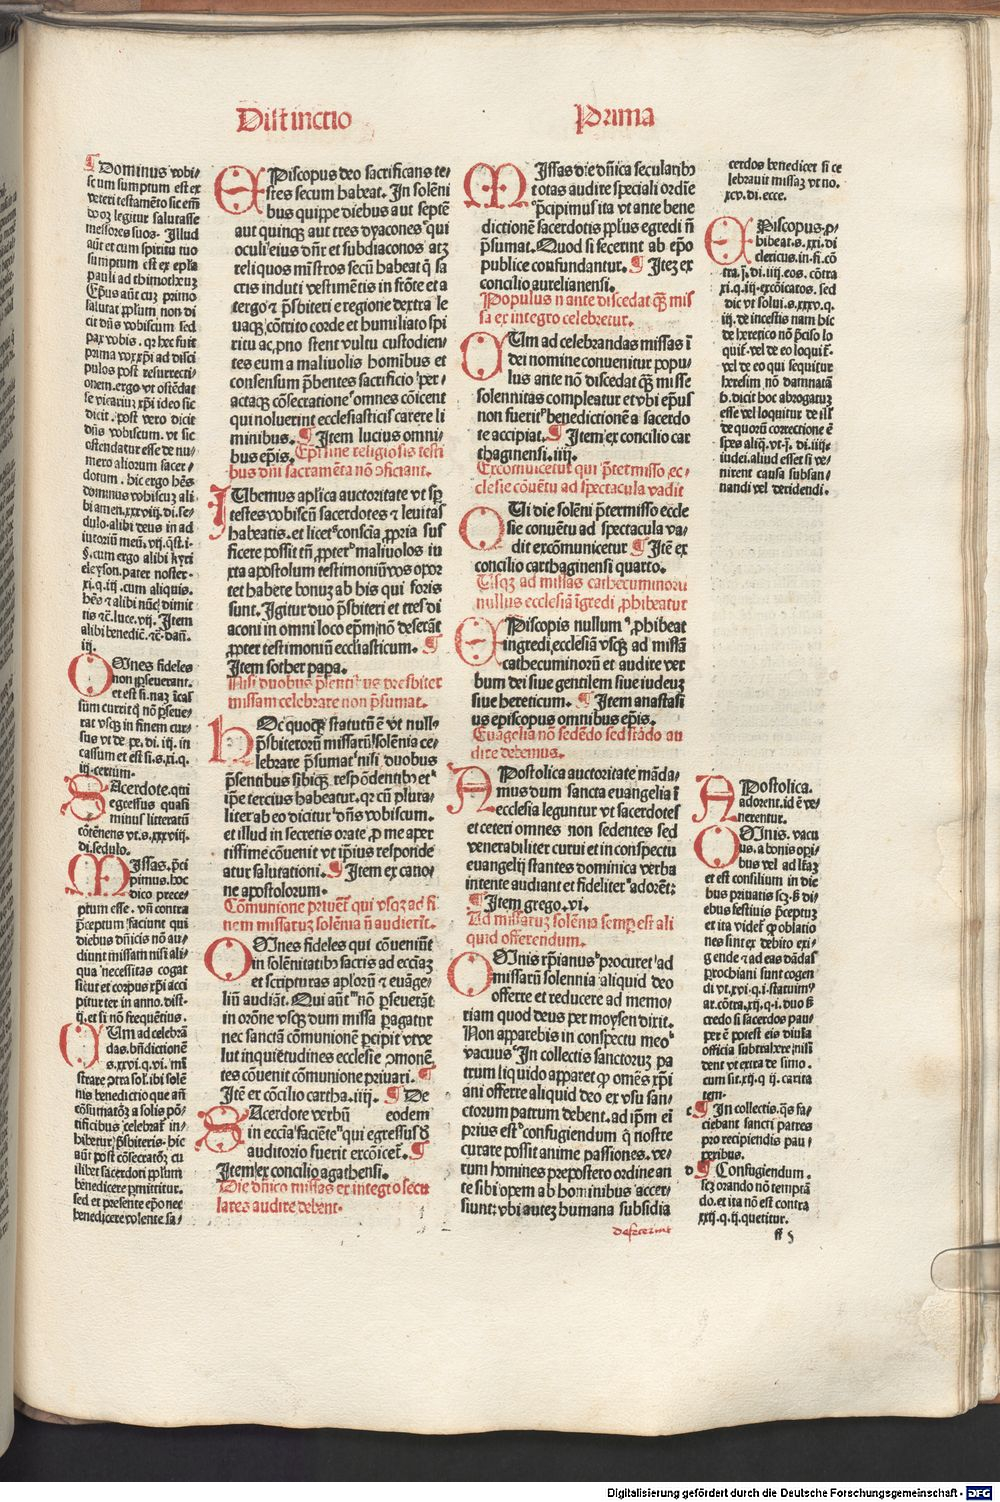 Distinctio Prima
¶ Dominus vobi⸗
scum sumptum est ex
veteri testamẽto sic em̃
booz legitur salutasse
messores suos. Illud
aũt et cum spiritu tuo
sumptum est ex epl̃a
pauli ad thimotheuz
Ep̃us aũt cuz primo
salutat pplum non di
cit dñs vobiscum sed
pax vobis. qꝛ hec fuit
prima vox xp̃i ad disci
pulos post resurrecti⸗
onem. ergo vt ostẽdat
se vicariuz xp̃i ideo sic
dicit. post vero dicit
dñs vobiscum. vt sic
ostendatur esse de nu⸗
mero aliorum sacer⸗
dotum. hic ergo hẽs
dominus vobiscuz ali
bi amen. xxviij. di. se⸗
dulo. alibi deus in ad
iutoriũ meũ. vij. q̃st. i.
§. cum ergo alibi kyri
eleyson. pater noster.
xi. q. iij. cum aliquis.
hẽs ⁊ alibi nũc dimit
tis ⁊c̃. luce. vij. Item
alibi benedic̃. ⁊c̃. dañ.
iij.
OMnes fideles
non pseuerant.
et est si. naz ĩcas
sum currit q̃ nõ pseue⸗
rat vsqꝫ in finem cur⸗
sus vt de pe. di. iij. in
cassum et est si. s. xi. q.
iij. certum.
SAcerdote. qui
egressus quasi
minus litteratũ
cõtẽnens vt. s. xxxviij.
di. sedulo.
MIssas. p̃ci
pimus. hoc
dico prece⸗
ptum esse. vñ contra
p̃ceptum faciunt qui
diebus dñicis nõ au⸗
diunt missam nisi ali⸗
qua necessitas cogat
sicut et corpus xp̃i acci
pitur ter in anno. dist⸗
ij. et si nõ frequẽtius.
CUm ad celebrã
das. bñdictionẽ
s. xxvi. q. vi. mi
strare ꝯtra sol. ibi solẽ
nis benedictio que añ
cõsumatõz a solis põ⸗
tificibus celebrat in⸗
hibetur p̃sbiteris. hic
aũt post cõsecratõz cu
ilibet sacerdoti pplum
benedicere pmittitur.
sed et presente ep̃o nec
benedicere volente sa⸗
EPiscopus deo sacrificans te⸗
stes secum habeat. In solẽni
bus quippe diebus aut septẽ
aut quinqꝫ aut tres dyacones qui
oculi eius dñr et subdiaconos atqꝫ
reliquos mĩstros secũ habeat q̃ sa
cris induti vestimẽtis in frõte et a
tergo ⁊ p̃sbiteri e regione dextra le
uaqꝫ cõtrito corde et humiliato spi
ritu ac, pno stent vultu custodien⸗
tes eum a maliuolis homĩbus et
consensum p̃bentes sacrificio per⸗
actaqꝫ cõsecratione omnes cõicent
qui noluerint ecclesiasticis carere li
minibus. ¶ Item lucius omni⸗
bus ep̃is. Ep̃i sine religiosis testi
bus dñi sacramẽta nõ ꝯficiant.
IUbemus aplica auctoritate vt sp̃
testes vobiscũ sacerdotes ⁊ leuitas
habeatis. et licet conscia ppria suf
ficere possit tñ ppter maliuolos iu
xta apostolum testimoniũ vos opor
tet habere bonuz ab his qui foris
sunt. Igitur duo p̃sbiteri et tres di
aconi in omni loco ep̃m nõ deserãt
ppter testimoniũ ecclĩasticum. ¶
Item sother papa.
Nisi duobus p̃sentibus presbiter
missam celebrare non p̃sumat.
HOc quoqꝫ statutũ ẽ vt null⸗
p̃sbiterorũ missarũ solẽnia ce⸗
lebrare p̃sumat nisi duobus
p̃sentibus sibiqꝫ respõdentibꝫ et
ip̃e tercius habeatur. qꝛ cũ plura⸗
liter ab eo dicitur dñs vobiscum.
et illud in secretis orate p me aper
tissime cõuenit vt ip̃ius responde
atur salutationi. ¶ Item ex cano⸗
ne apostolorum.
Cõmunione priuet̃ qui vsqꝫ ad fi
nem missaruz solẽnia ñ audierit.
OMnes fideles qui cõueniũt
in solẽnitatibꝫ sacris ad ecciaz
et scripturas aplorũ ⁊ euãge⸗
liũ audiãt. Qui aũt nõ pseuerãt
in orõne vsqꝫ dum missa pagatur
nec sanctã cõmunionẽ pcipit vt ve
lut inquietudines ecclesie ꝯmonẽ⸗
tes cõuenit cõmunione priuari. ¶
Itẽ ex cõcilio cartha. iiij. ¶ De
SAcerdote verbũ eodem
in eccĩa faciẽte qui egressus d̃
auditorio fuerit excõicet̃. ¶
Item ex concilio agathensi.
Die dñico missas ex integro secu
lares audire debent.
MIssas die dñica secularibꝫ
totas audire speciali ordĩe
p̃cipimus ita vt ante bene
dictionẽ sacerdotis pplus egredi ñ
p̃sumat. Quod si fecerint ab ep̃o
publice confundantur. ¶ Itez ex
concilio aurelianensi.
Populus ñ ante discedat qꝫ mis
sa ex integro celebretur.
CUm ad celebrandas missas ĩ
dei nomine conuenitur popu⸗
lus ante nõ discedat qꝫ misse
solennitas compleatur et vbi ep̃us
non fuerit benedictionẽ a sacerdo
te accipiat. ¶ Item ex concilio car
thaginensi. iiij.
Excõmunicetur qui p̃termisso ec⸗
clesie cõuẽtu ad spectacula vadit
QUi die solẽni p̃termisso eccle
sie conuẽtu ad spectacula va⸗
dit excõmunicetur ¶ Itẽ ex
concilio carthaginensi quarto.
Usqꝫ ad missas cathecuminorũ
nullus ecclesiã ĩgredi phibeatur
EPiscopus nullum phibeat
ingredi ecclesiã vsqꝫ ad missã
cathecuminorũ et audire ver
bum dei siue gentilem siue iudeuz
siue hereticum. ¶ Item anastasi
us episcopus omnibus ep̃is.
Euãgelia nõ sedẽdo sed stãdo au
dire debemus.
APostolica auctoritate mãda⸗
mus dum sancta euangelia ĩ
ecclesia leguntur vt sacerdotes
et ceteri omnes non sedentes sed
venerabiliter curui et in conspectu
euangelij stantes dominica verba
intente audiant et fideliter adorẽt:
¶ Item grego. vi.
Ad missaruz solẽnia semp est ali
quid offerendum.
OMnis xp̃ianus procuret ad
missarũ solennia aliquid deo
offerre et reducere ad memo⸗
riam quod deus per moysen dixit.
Non apparebis in conspectu meo
vacuus In collectis sanctoruz pa
trum liquido apparet q̃ omẽs xp̃i
ani offerre aliquid deo ex vsu san⸗
ctorum patrum debent. ad ip̃m ei
prius est confugiendum q̃ nostre
curare possit anime passiones. ve⸗
rum homines prepostero ordine an
te sibi opem ab hominibus accer⸗
siunt: vbi autez humana subsidia
defecerint
cerdos benedicet si ce
lebrauit missaz vt no.
xcv. di. ecce.
EPiscopus. p⸗
hibeat. s. xxi. di
clericus. in. fi. cõ
tra. j. di. iiij. eos. cõtra
xi. q. iij. excõicatos. sed
dic vt solui. s. xxxv. q.
iij. de incestis nam hic
de heretico nõ p̃ciso lo
quit̃. vel de eo loquit̃.
vel de eo qui sequitur
heresim nõ damnatã
b. dicit hoc abrogatuz
esse vel loquitur de ill̃
de quorũ correctione ẽ
spes aliq̃. vt. j. di. iiij.
iudei. aliud esset si ve⸗
nirent causa subsan⸗
nandi vel deridendi.
APostolica.
adorent. id ẽ ve⸗
nerentur.
OMnis. vacu
us. a bonis op̃i⸗
bus vel ad lr̃az
et est consilium in die
bus priuatis scz. s̃ di⸗
ebus festiuis p̃ceptuz
et ita videt̃ q̃ oblatio
nes sint ex debito exi⸗
gende ⁊ ad eas dãdas
prochiani sunt cogen
di vt. xvi. q. i. statuim⸗
ar. cõtra. xij. q. i. duo s̃
credo si sacerdos pau⸗
per ẽ potest eis diuĩa
officia subtrahere nisi
dent vt extra de simo.
cum sit. xij. q. ij. carita
tem.
c¶ In collectis. q̃s fa⸗
ciebant sancti patres
pro recipiendis pau⸗
peribus.
d¶ Confugiendum.
scz orando nõ temptã
do. et ita nõ est contra
xxij. q. ij. quetitur.
ff 5
Digitalisierung gefördert durch die Deutsche Forschungsgemeinschaft - DFG